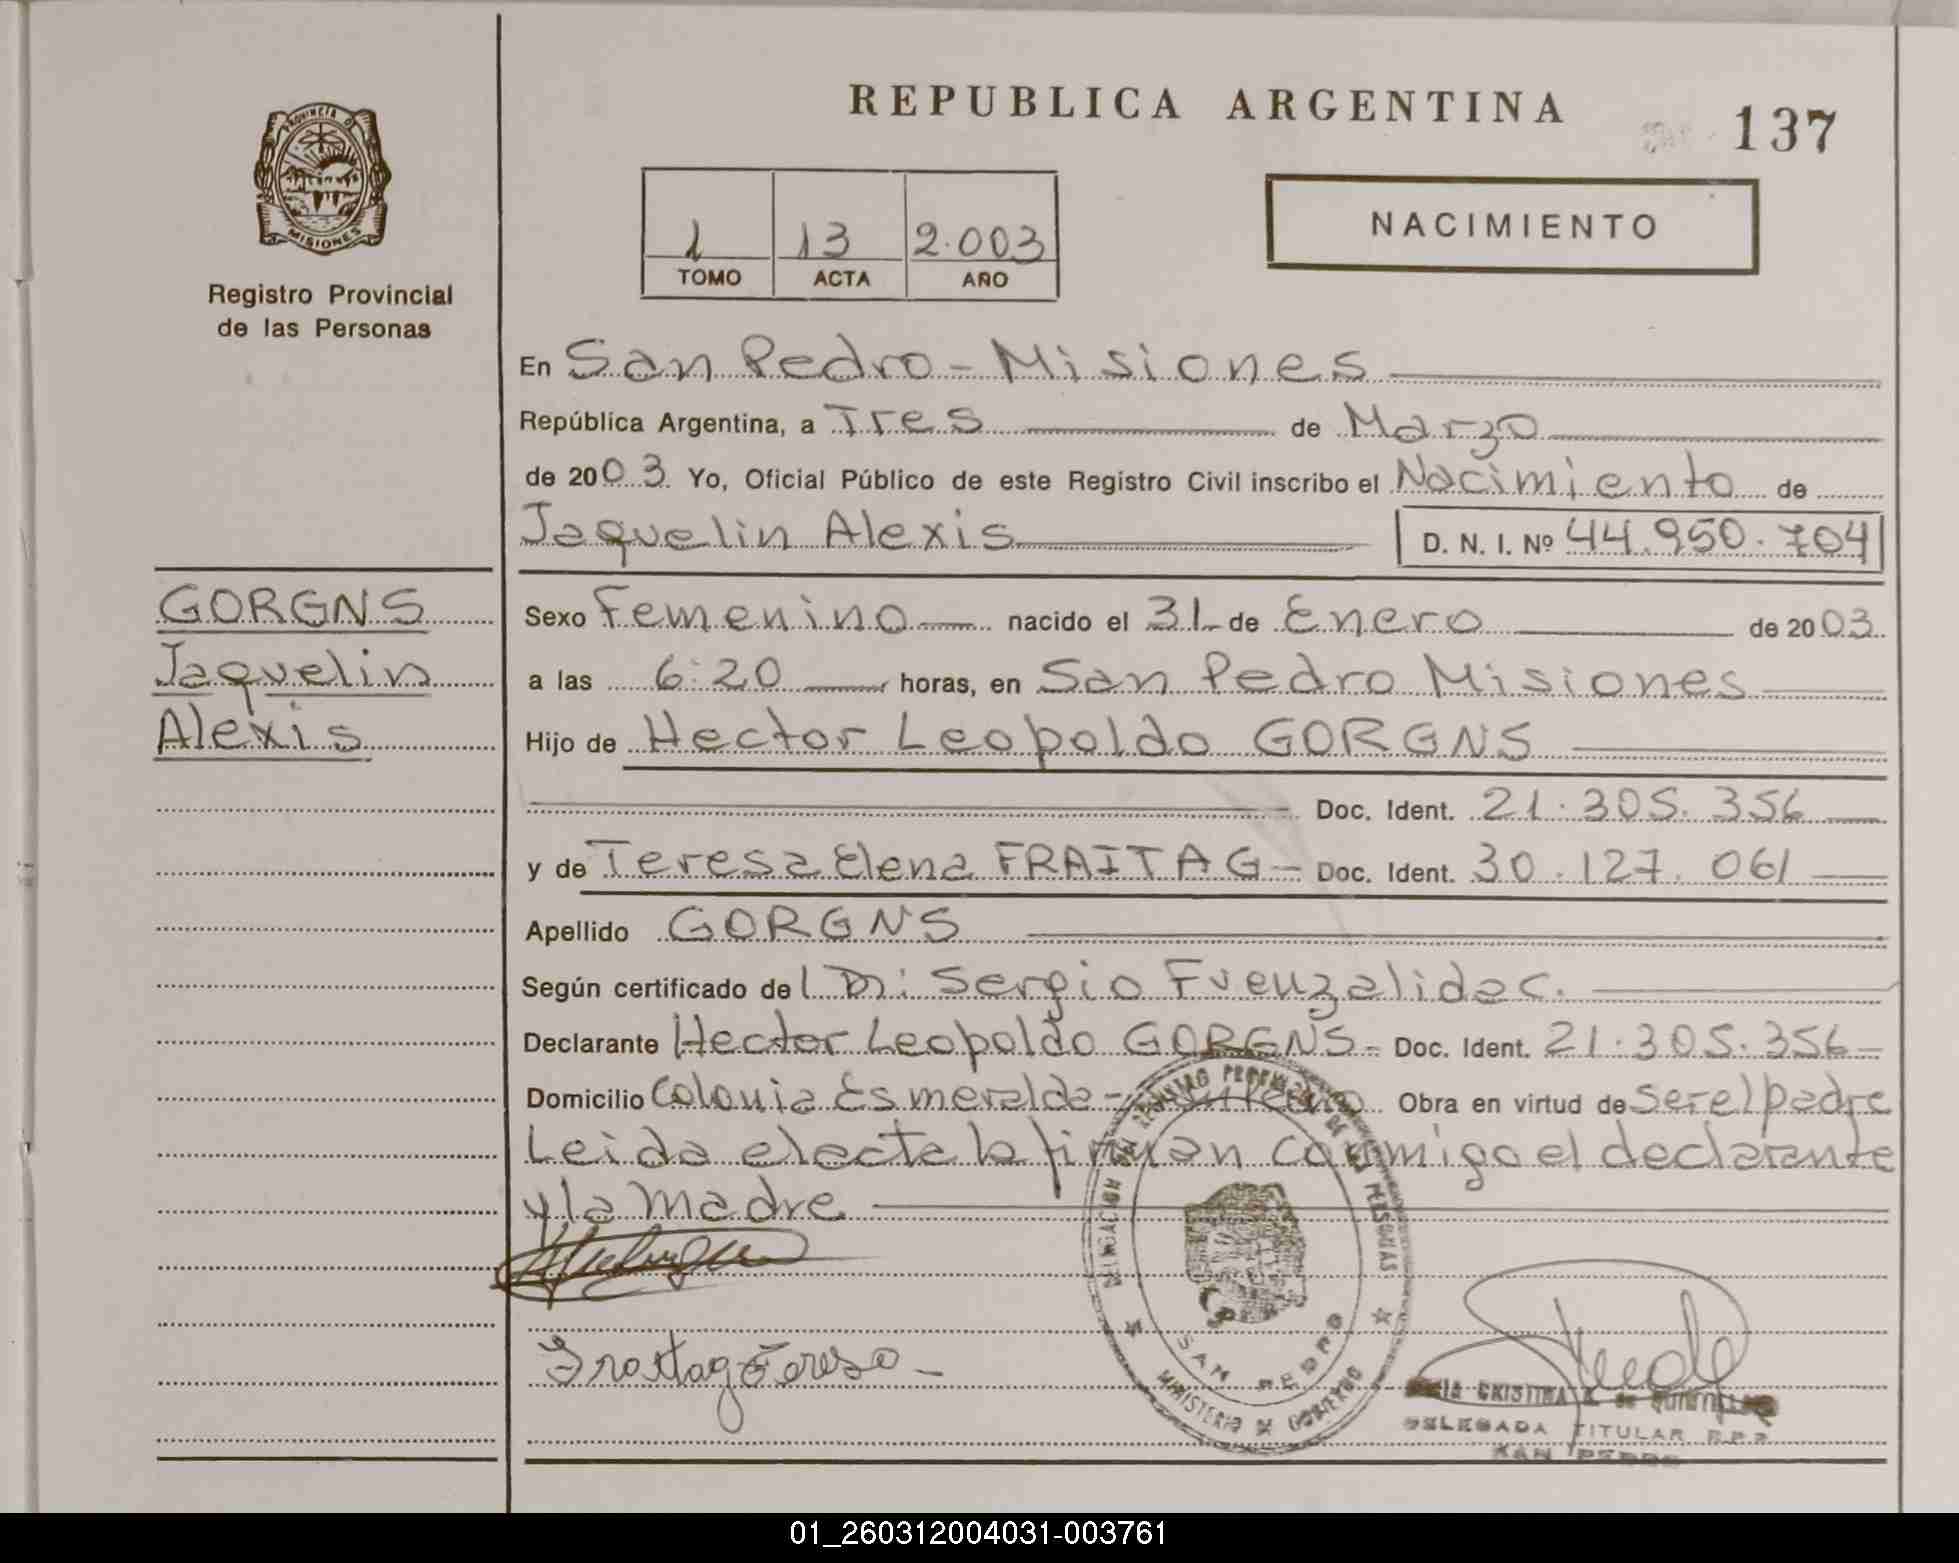 REPUBLICA ARGENTINA
137
PROVINCIA DE
MISIONES
Registro Provincial
de las Personas
1 13 2.003
TOMO ACTA AÑO
NACIMIENTO
En San Pedro - Misiones
República Argentina, a Tres de Marzo
de 2003 Yo, Oficial Público de este Registro Civil inscribo el Nacimiento de
Jaquelin Alexis D. N. I. Nº 44.950.704
GORGNS
Jaquelin
Alexis
Sexo Femenino nacido el 31 de Enero de 2003
a las 6:20 horas, en San Pedro Misiones
Hijo de Hector Leopoldo GORGNS
Doc. Ident. 21.305.356
y de Teresa Elena FRAITAG - Doc. Ident. 30.127.061
Apellido GORGNS
Según certificado del Dr: Sergio Fuenzalida C.
Declarante Hector Leopoldo GORGNS - Doc. Ident. 21.305.356 -
Domicilio Colonia Esmeralda - Obra en virtud de Ser el padre
Leida el acta la firman conmigo el declarante
y la Madre
Teresa -
DE LAS PERSONAS
SAN PEDRO
MINISTERIO DE GOBIERNO
CRISTINA
DELEGADA TITULAR R.P.P.
SAN PEDRO
01_260312004031-003761